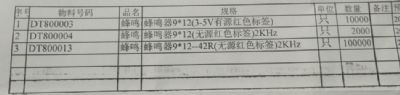 序号 物料号码 品名 规格 单位 数量 备注
1 DT800003 蜂鸣 蜂鸣器9*12(3-5V有源红色标签) 只 10000
2 DT800004 蜂鸣 蜂鸣器9*12(无源红色标签)2KHz 只 2000
3 DT800013 蜂鸣 蜂鸣器9*12--42R(无源红色标签)2KHz 只 100000